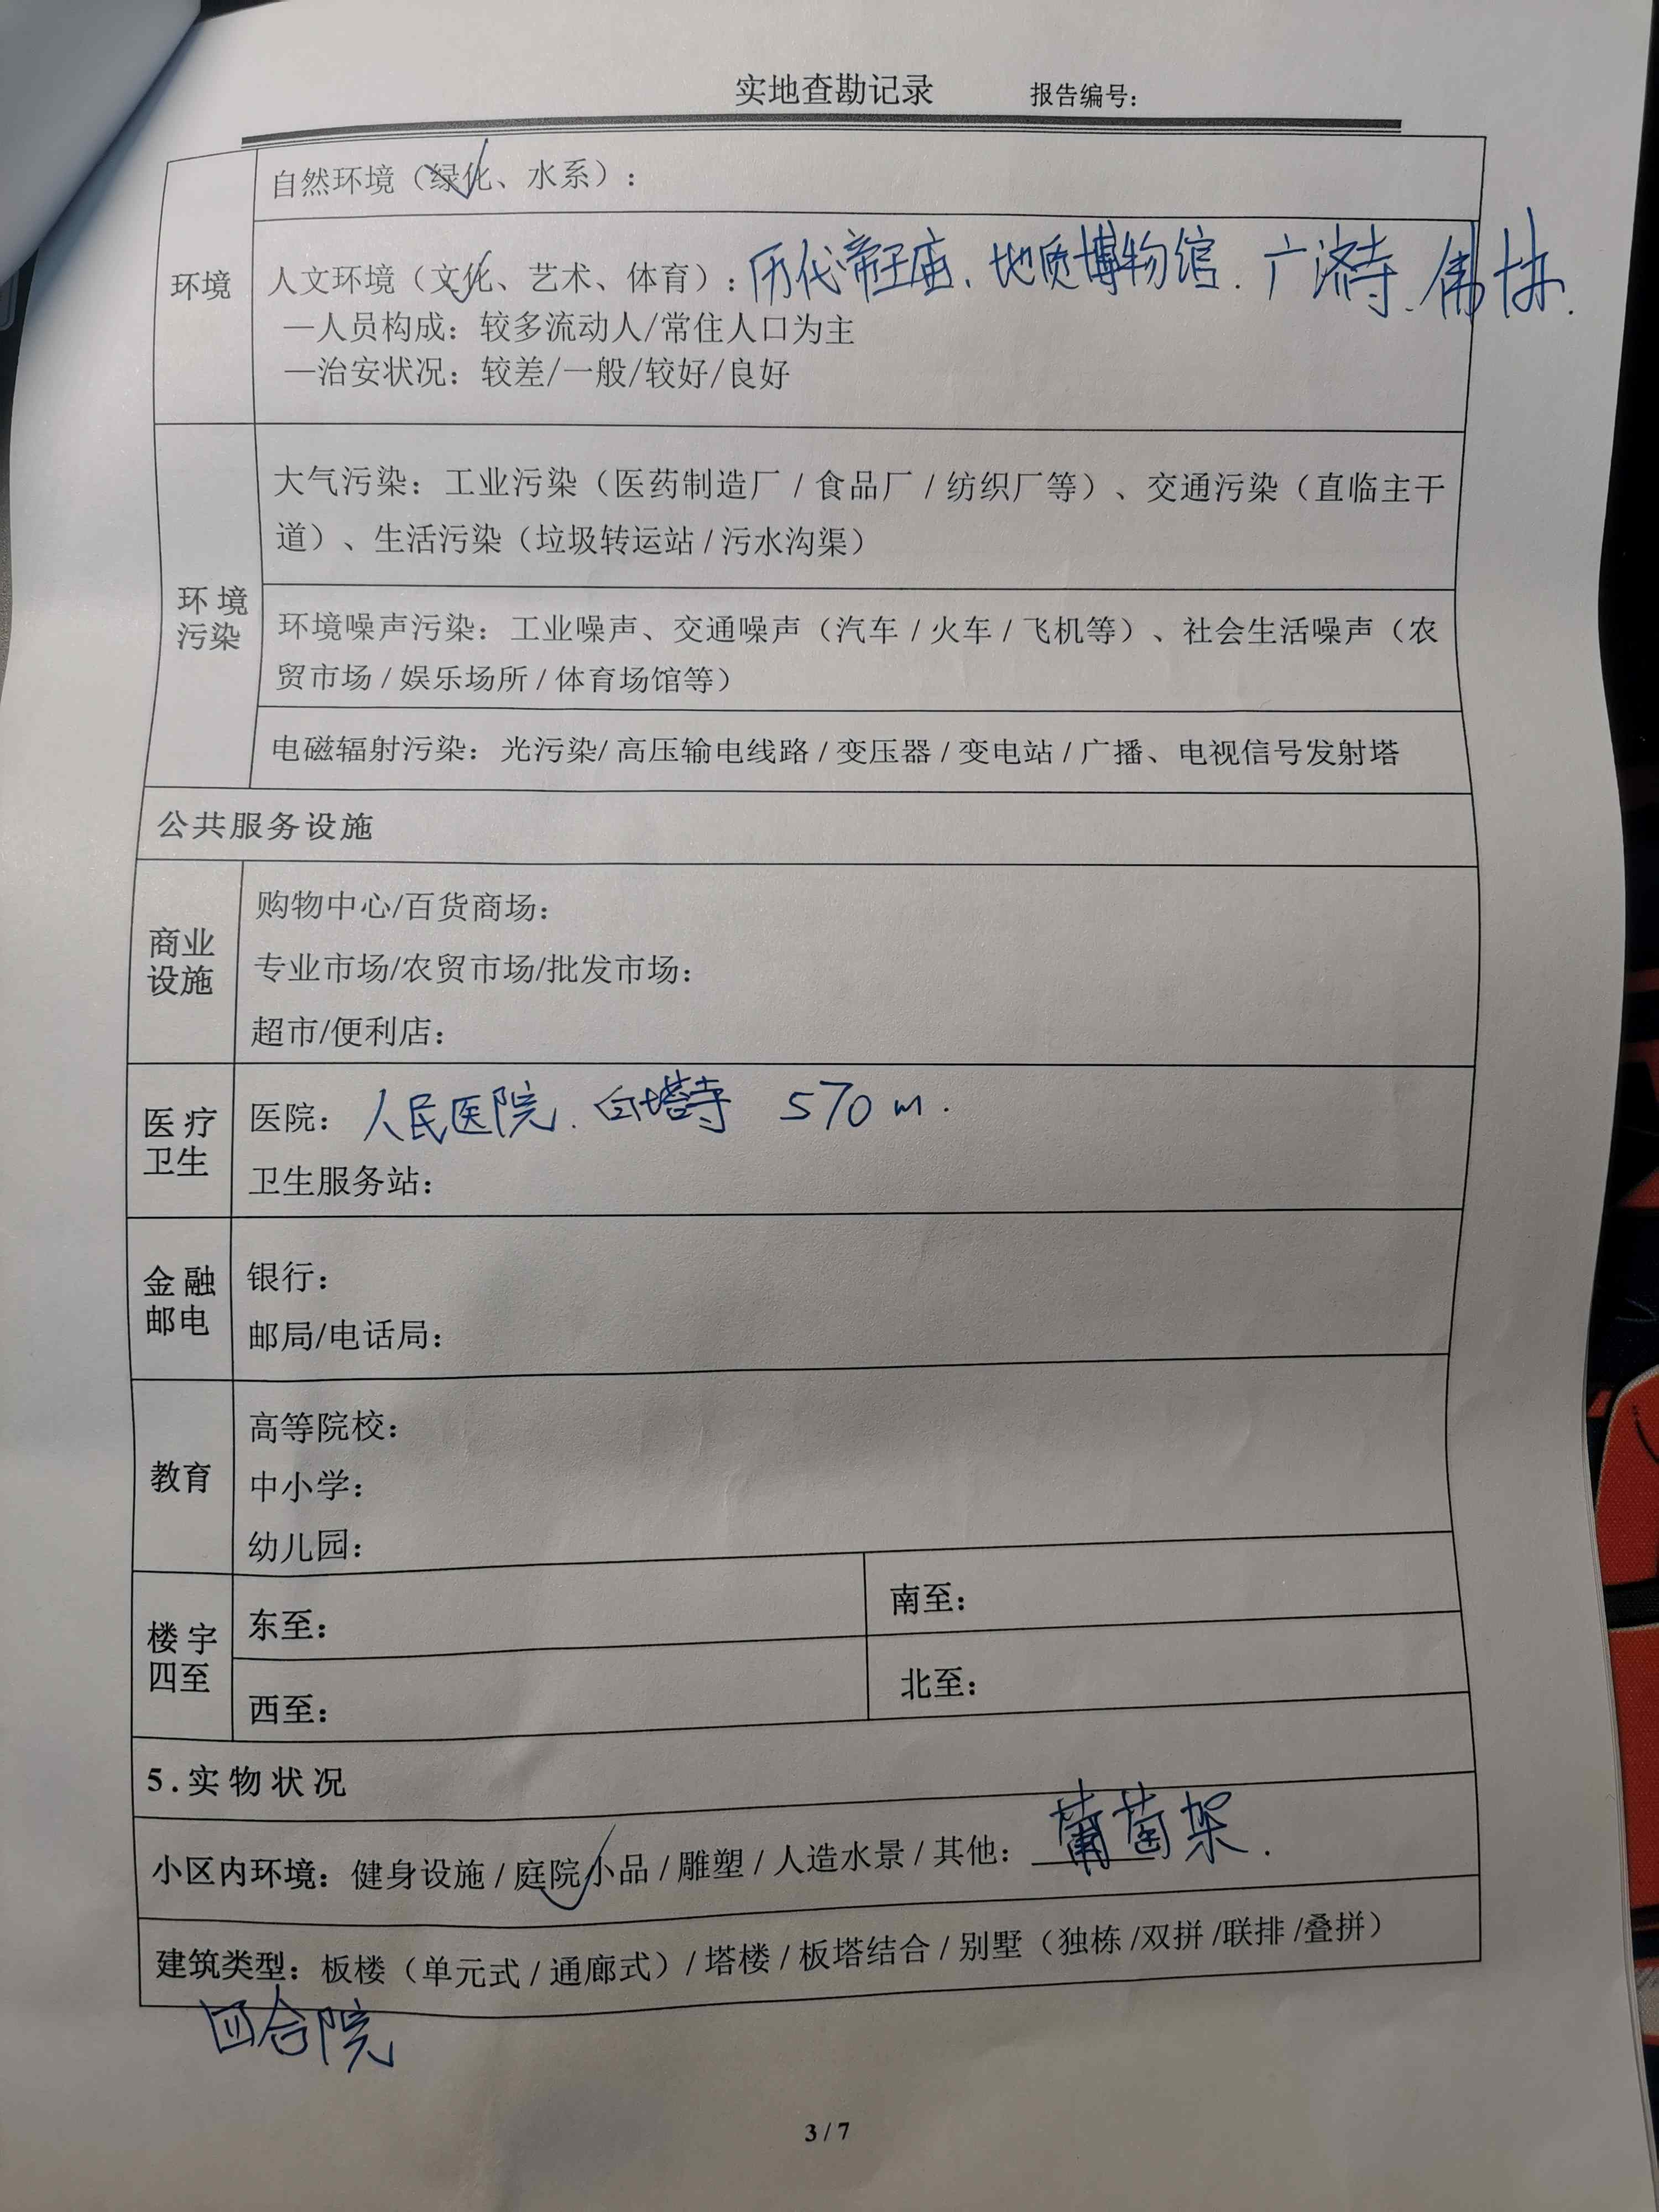 实地查勘记录 报告编号：
环境
自然环境（绿化、水系）：
人文环境（文化、艺术、体育）：历代帝王庙、地质博物馆.广济寺、佛协.
—人员构成：较多流动人/常住人口为主
—治安状况：较差/一般/较好/良好
环境
污染
大气污染：工业污染（医药制造厂 / 食品厂 / 纺织厂等）、交通污染（直临主干
道）、生活污染（垃圾转运站 / 污水沟渠）
环境噪声污染：工业噪声、交通噪声（汽车 / 火车 / 飞机等）、社会生活噪声（农
贸市场 / 娱乐场所 / 体育场馆等）
电磁辐射污染：光污染/ 高压输电线路 / 变压器 / 变电站 / 广播、电视信号发射塔
公共服务设施
商业
设施
购物中心/百货商场：
专业市场/农贸市场/批发市场：
超市/便利店：
医疗
卫生
医院：人民医院.白塔寺 570m.
卫生服务站：
金融
邮电
银行：
邮局/电话局：
教育
高等院校：
中小学：
幼儿园：
楼宇
四至
东至：
南至：
西至：
北至：
5.实物状况
小区内环境：健身设施 / 庭院小品 / 雕塑 / 人造水景 / 其他：葡萄架.
建筑类型：板楼（单元式 / 通廊式）/ 塔楼 / 板塔结合 / 别墅（独栋 /双拼 /联排 /叠拼）
四合院
3 / 7